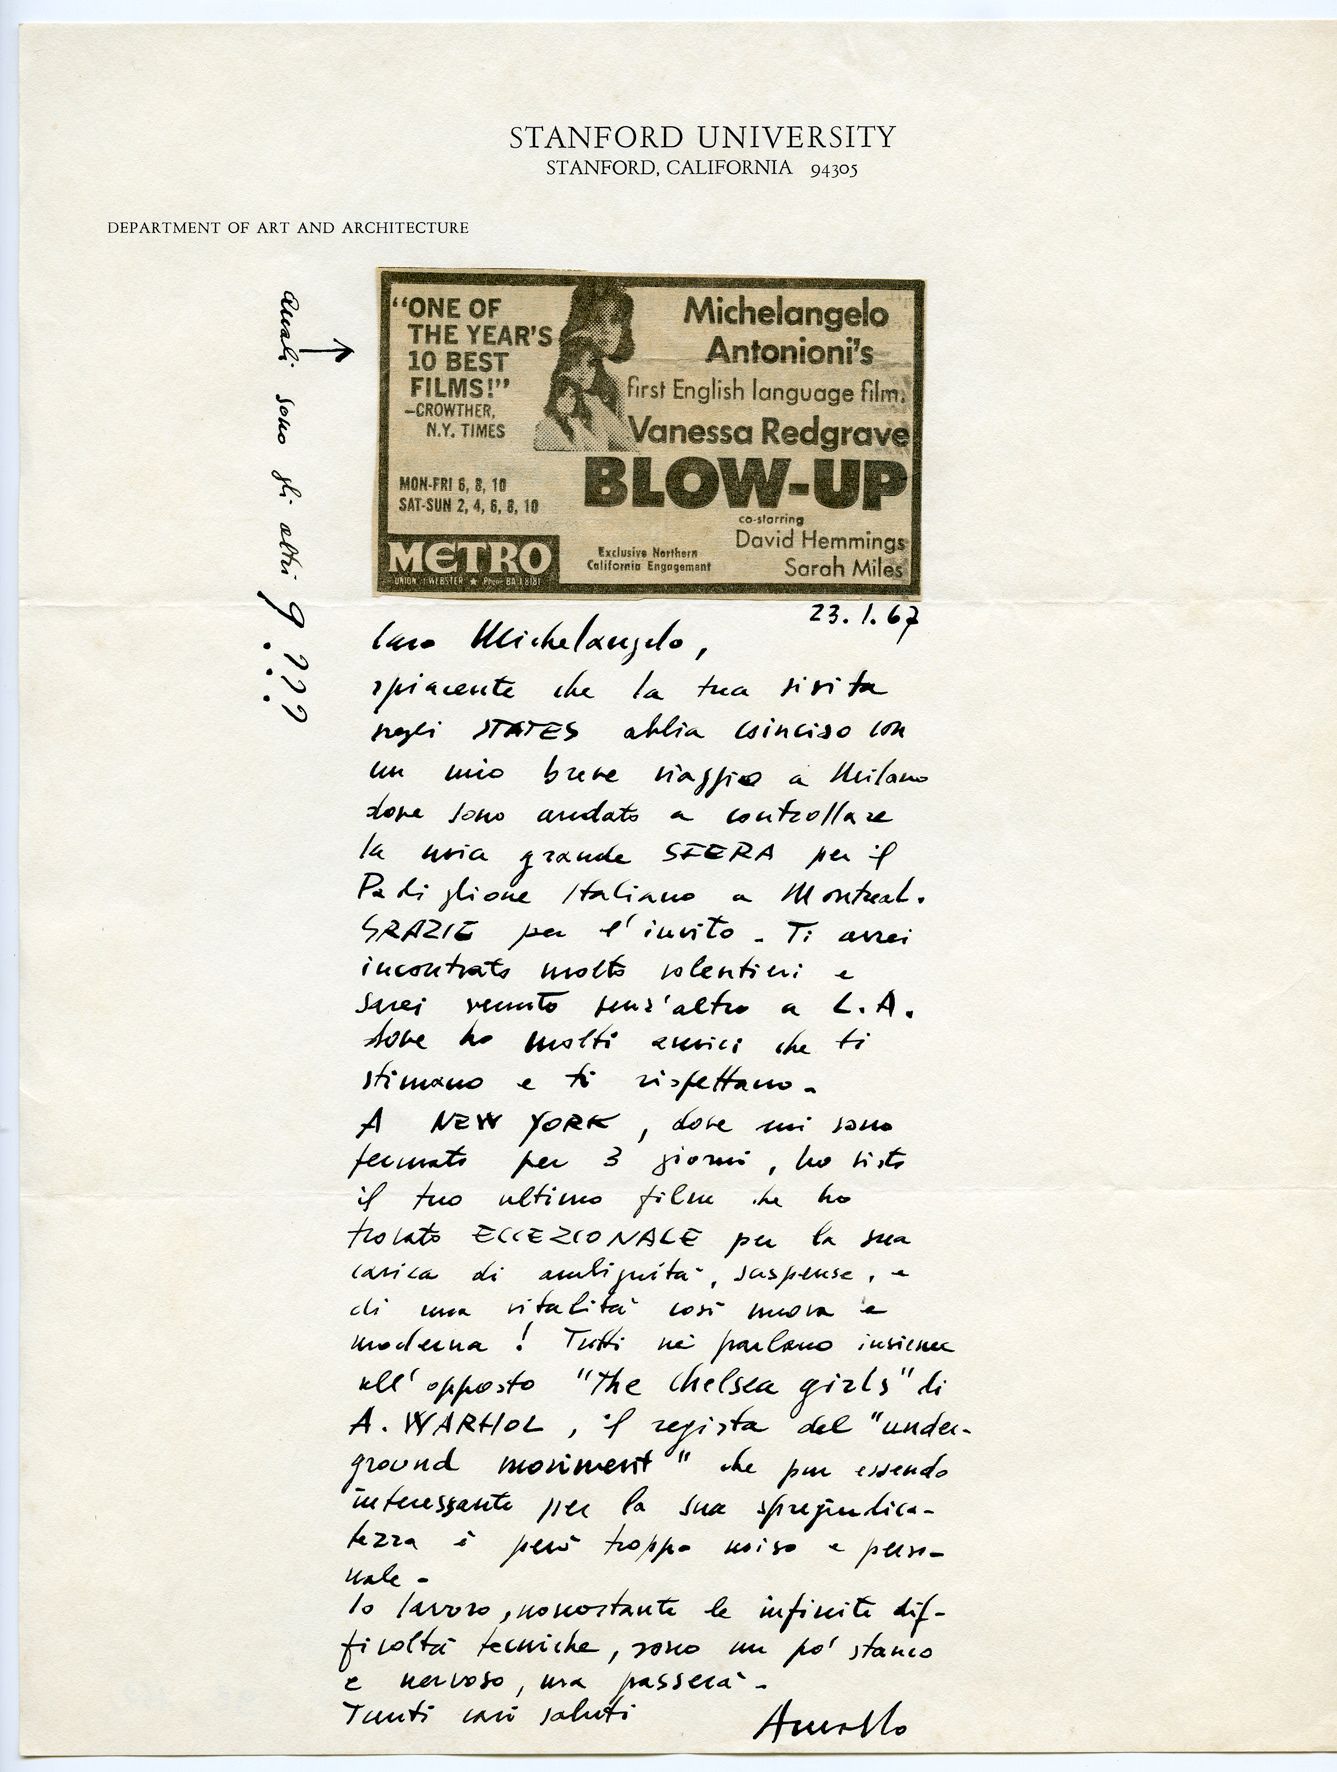 STANFORD UNIVERSITY
STANFORD, CALIFORNIA 94305
DEPARTMENT OF ART AND ARCHITECTURE
Quali sono gli altri 9 ???
"ONE OF
THE YEAR'S
10 BEST
FILMS!"
–CROWTHER,
N.Y. TIMES
MON-FRI 6, 8, 10
SAT-SUN 2, 4, 6, 8, 10
METRO
UNION & WEBSTER ★ Phone BA 1-8181
Michelangelo
Antonioni's
first English language film.
Vanessa Redgrave
BLOW-UP
co-starring
David Hemmings
Sarah Miles
Exclusive Northern
California Engagement
23.1.67
Caro Michelangelo,
spiacente che la tua visita
negli STATES abbia coinciso con
un mio breve viaggio a Milano
dove sono andato a controllare
la mia grande SFERA per il
Padiglione Italiano a Montreal.
GRAZIE per l'invito. Ti avrei
incontrato molto volentieri e
sarei venuto senz'altro a L.A.
dove ho molti amici che ti
stimano e ti rispettano.
A NEW YORK, dove mi sono
fermato per 3 giorni, ho visto
il tuo ultimo film che ho
trovato ECCEZIONALE per la sua
carica di ambiguità, suspense, e
di una vitalità così nuova e
moderna! Tutti nè parlano insieme
all'opposto "The Chelsea girls" di
A. WARHOL, il regista del "under-
ground moviment" che pur essendo
interessante per la sua spregiudica-
tezza è però troppo noiso e perso-
nale -
Io lavoro, nonostante le infinite dif-
ficoltà tecniche, sono un po' stanco
e nervoso, ma passerà -
Tanti cari saluti
Arnaldo